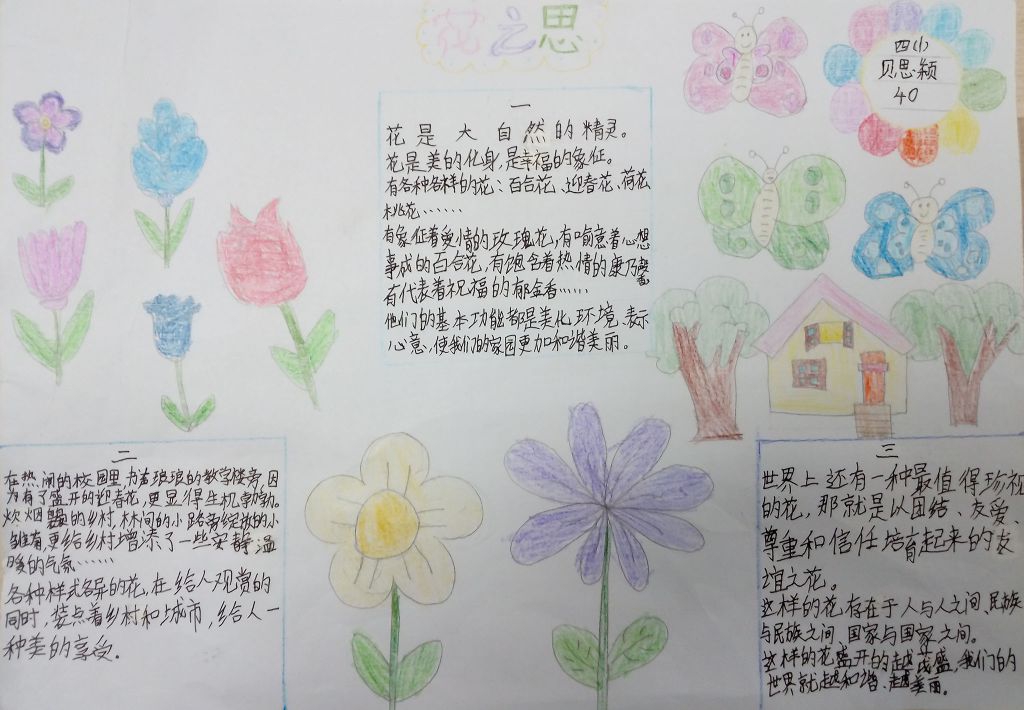 花之思
四(1)
贝思颖
40
一
花是大自然的精灵。
花是美的化身,是幸福的象征。
有各种各样的花:百合花、迎春花、荷花
桃花……
有象征着爱情的玫瑰花,有喻意着心想
事成的百合花,有饱含着热情的康乃馨
有代表着祝福的郁金香……
他们的基本功能都是美化环境、表示
心意,使我们的家园更加和谐美丽。
二
在热闹的校园里,书声琅琅的教学楼旁,因
为有了盛开的迎春花,更显得生机勃勃。
炊烟的乡村,林间的小路旁绽放的小
雏菊,更给乡村增添了一些安静温
暖的气氛……
各种样式各异的花,在给人观赏的
同时,装点着乡村和城市,给人一
种美的享受。
三
世界上还有一种最值得珍视
的花,那就是以团结、友爱、
尊重和信任培育起来的友
谊之花。
这样的花,存在于人与人之间,民族
与民族之间、国家与国家之间。
这样的花盛开的越茂盛,我们的
世界就越和谐、越美丽。